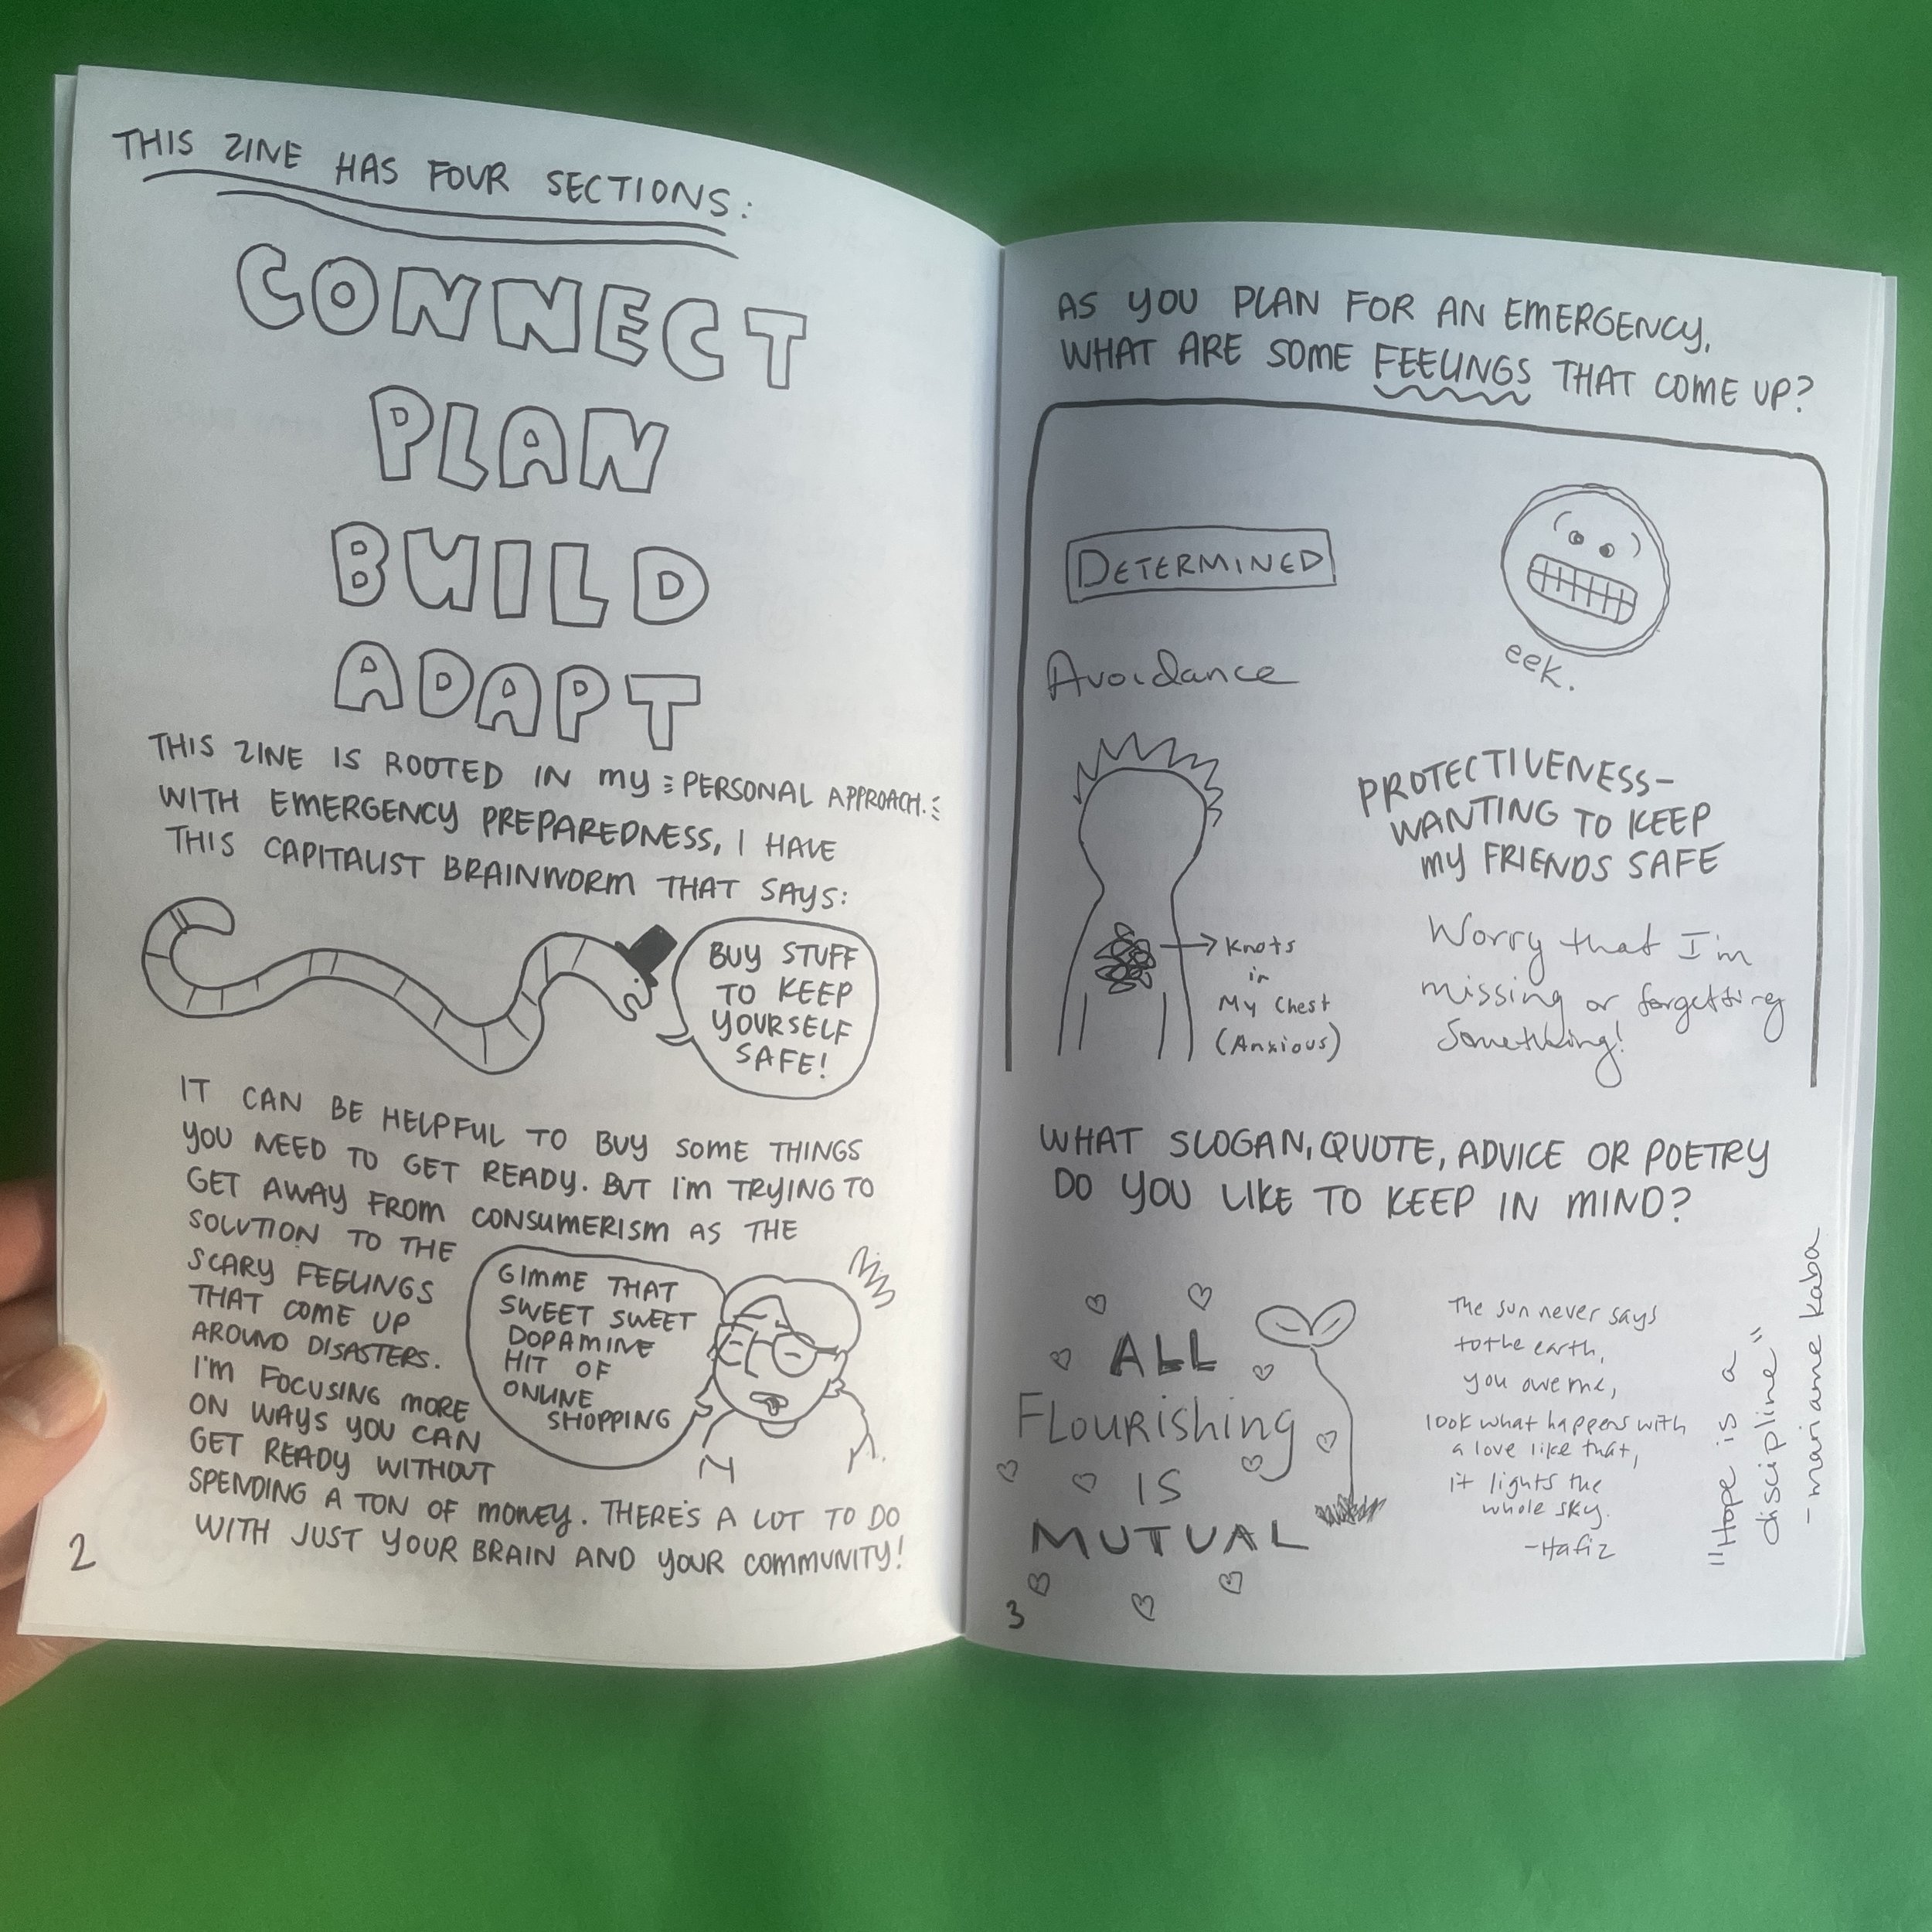 THIS ZINE HAS FOUR SECTIONS:
CONNECT
PLAN
BUILD
ADAPT
THIS ZINE IS ROOTED IN MY PERSONAL APPROACH.
WITH EMERGENCY PREPAREDNESS, I HAVE
THIS CAPITALIST BRAINWORM THAT SAYS:
BUY STUFF
TO KEEP
YOURSELF
SAFE!
IT CAN BE HELPFUL TO BUY SOME THINGS
YOU NEED TO GET READY. BUT I'M TRYING TO
GET AWAY FROM CONSUMERISM AS THE
SOLUTION TO THE
SCARY FEELINGS
THAT COME UP
AROUND DISASTERS.
I'M FOCUSING MORE
ON WAYS YOU CAN
GET READY WITHOUT
SPENDING A TON OF MONEY. THERE'S A LOT TO DO
WITH JUST YOUR BRAIN AND YOUR COMMUNITY!
GIMME THAT
SWEET SWEET
DOPAMINE
HIT OF
ONLINE
SHOPPING
2
AS YOU PLAN FOR AN EMERGENCY,
WHAT ARE SOME FEELINGS THAT COME UP?
DETERMINED
eek.
Avoidance
PROTECTIVENESS-
WANTING TO KEEP
MY FRIENDS SAFE
Knots
in
My Chest
(Anxious)
Worry that I'm
missing or forgetting
Something!
WHAT SLOGAN, QUOTE, ADVICE OR POETRY
DO YOU LIKE TO KEEP IN MIND?
ALL
FLOURISHING
IS
MUTUAL
The sun never says
to the earth,
you owe me,
look what happens with
a love like that,
it lights the
whole sky.
-Hafiz
"Hope is a
discipline"
-mariame kaba
3